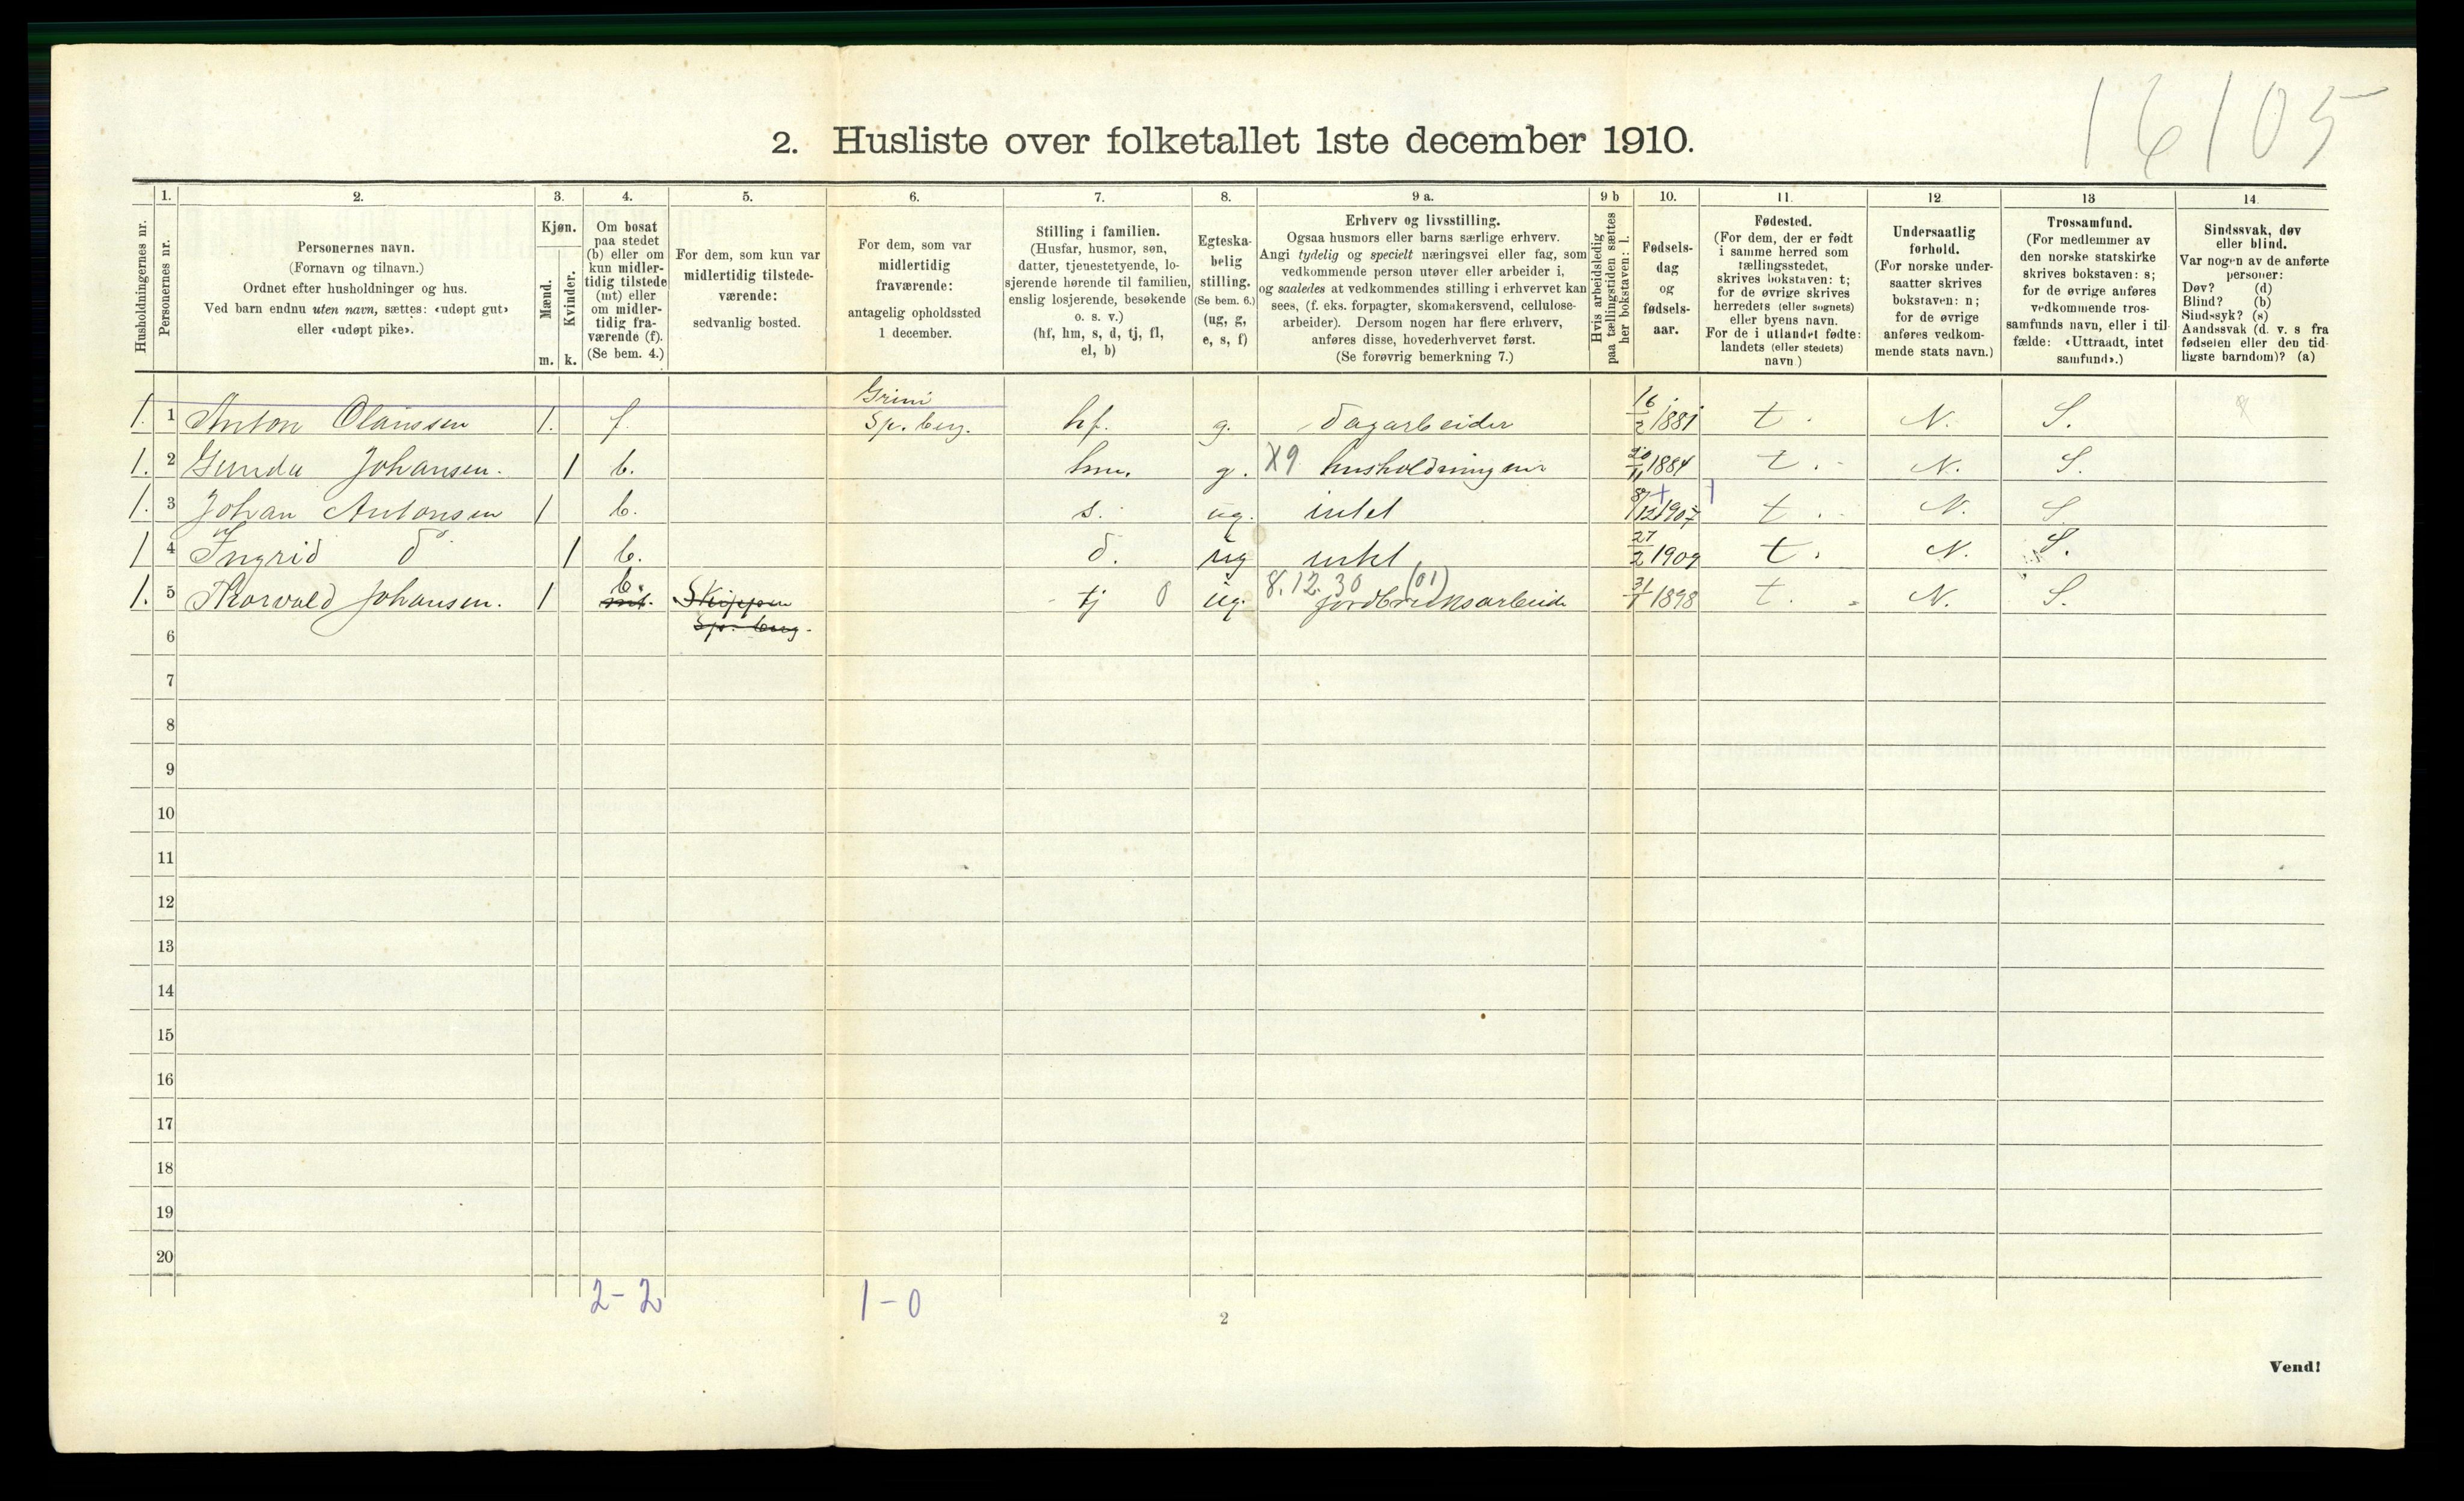 16105
2. Husliste over folketallet 1ste december 1910.
Husholdningernes nr.
1.
Personernes nr.
2.
Personernes navn.
(Fornavn og tilnavn.)
Ordnet efter husholdninger og hus.
Ved barn endnu uten navn, sættes: «udøpt gut»
eller «udøpt pike».
3.
Kjøn.
Mænd.
Kvinder.
m. k.
4.
Om bosat
paa stedet
(b) eller om
kun midler-
tidig tilstede
(mt) eller
om midler-
tidig fra-
værende (f).
(Se bem. 4.)
5.
For dem, som kun var
midlertidig tilstede-
værende:
sedvanlig bosted.
6.
For dem, som var
midlertidig
fraværende:
antagelig opholdssted
1 december.
7.
Stilling i familien.
(Husfar, husmor, søn,
datter, tjenestetyende, lo-
sjerende hørende til familien,
enslig losjerende, besøkende
o. s. v.)
(hf, hm, s, d, tj, fl,
el, b)
8.
Egteska-
belig
stilling.
(Se bem. 6.)
(ug, g,
e, s, f)
9 a.
Erhverv og livsstilling.
Ogsaa husmors eller barns særlige erhverv.
Angi tydelig og specielt næringsvei eller fag, som
vedkommende person utøver eller arbeider i,
og saaledes at vedkommendes stilling i erhvervet kan
sees, (f. eks. forpagter, skomakersvend, cellulose-
arbeider). Dersom nogen har flere erhverv,
anføres disse, hovederhvervet først.
(Se forøvrig bemerkning 7.)
9 b
Hvis arbeidsledig
paa tællingstiden sættes
her bokstaven: l.
10.
Fødsels-
dag
og
fødsels-
aar.
11.
Fødested.
(For dem, der er født
i samme herred som
tællingsstedet,
skrives bokstaven: t;
for de øvrige skrives
herredets (eller sognets)
eller byens navn.
For de i utlandet fødte:
landets (eller stedets)
navn)
12.
Undersaatlig
forhold.
(For norske under-
saatter skrives
bokstaven: n;
for de øvrige
anføres vedkom-
mende stats navn.)
13
Trossamfund.
(For medlemmer av
den norske statskirke
skrives bokstaven: s;
for de øvrige anføres
vedkommende tros-
samfunds navn, eller i til-
fælde: «Uttraadt, intet
samfund».)
14.
Sindssvak, døv
eller blind.
Var nogen av de anførte
personer:
Døv? (d)
Blind? (b)
Sindssyk? (s)
Aandssvak (d. v. s. fra
fødselen eller den tid-
ligste barndom)? (a)
Grini
1. 1 Anton Olaussen 1. f. Sp. berg. hf. g. dagarbeider 16/2 1881 t. N. S.
1. 2 Gunda Johansen. 1 b. hm. g. X9 husholdningen 20/11 1884 t. N. S.
1. 3 Johan Antonsen 1 b. s. ug. intet 8/12 1907 t. N. S.
1 4 Ingrid do 1 b. d. ug intet 27/2 1909 t. N. S.
b. 8.12.30 (01)
1. 5 Thorvald Johansen. 1 mt. Skippen tj 0 ug. jordbruksarbeide 3/1 1898 t. N. S.
6 Sp. berg.
7
8
9
10
11
12
13
14
15
16
17
18
19
20
2-2 1-0
2
Vend!